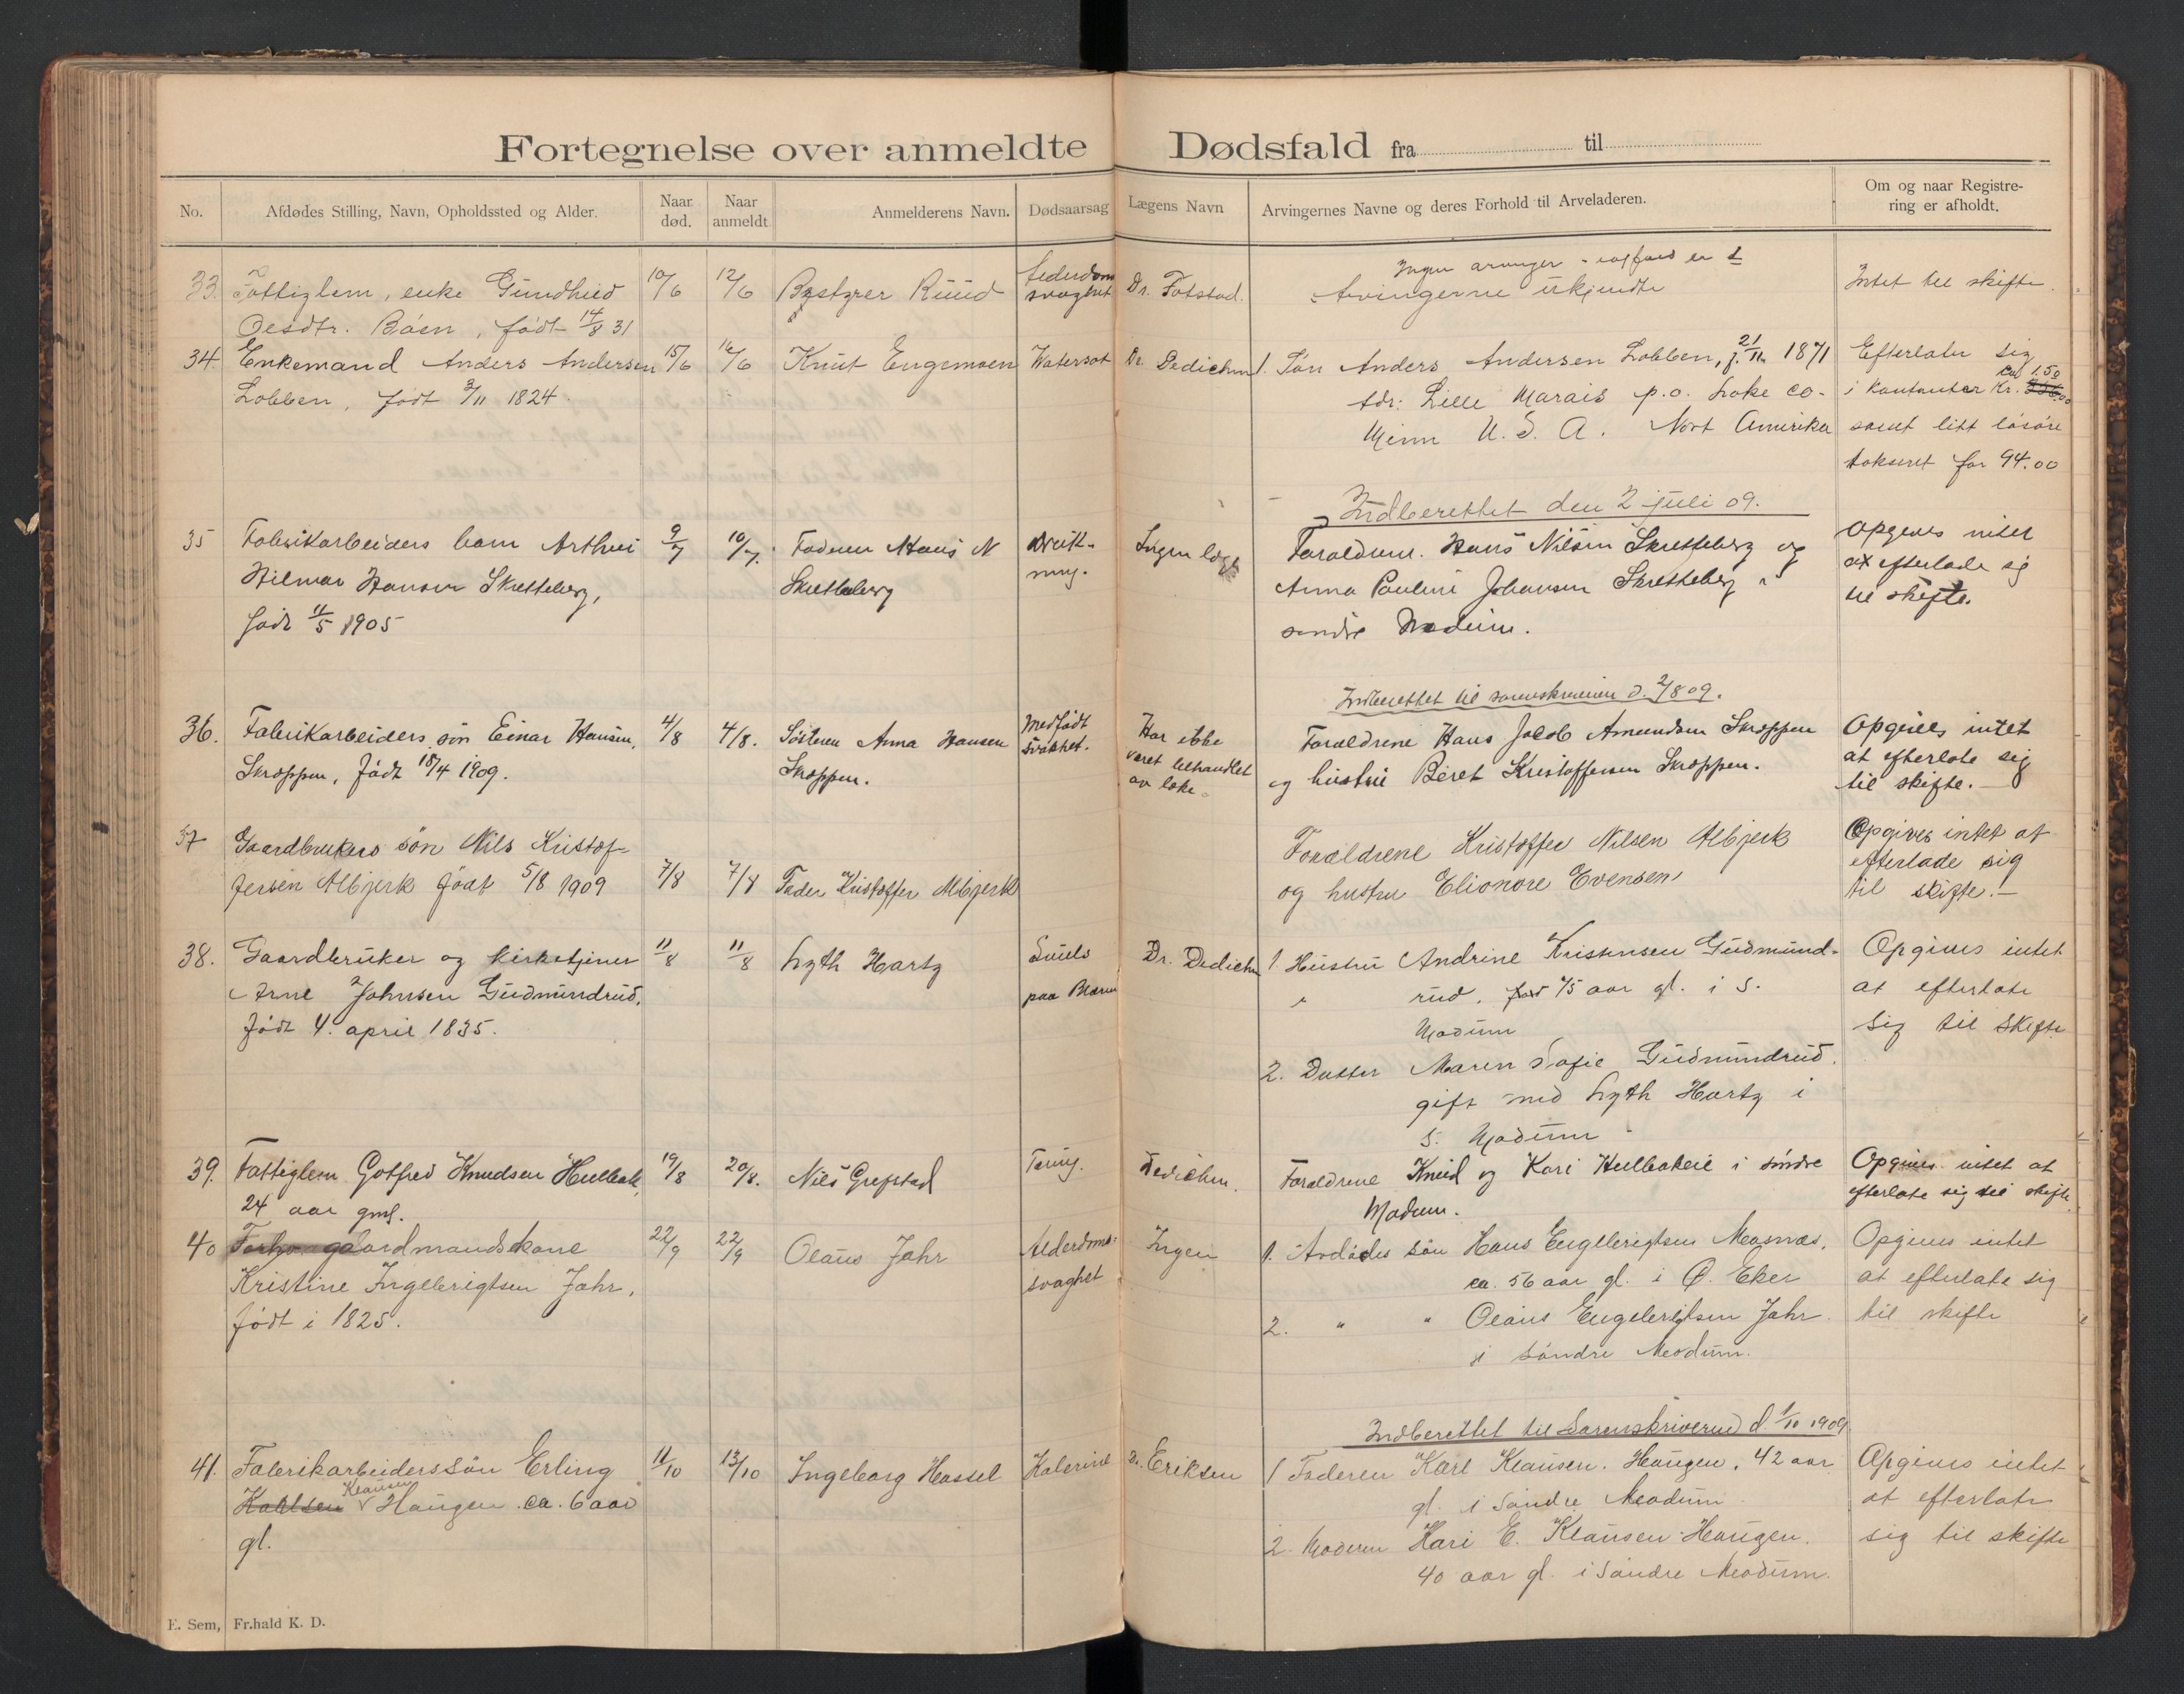 Fortegnelse over anmeldte Dødsfald fra til
No. Afdødes Stilling, Navn, Opholdssted og Alder. Naar død. Naar anmeldt Anmelderens Navn. Dødsaarsag Lægens Navn Arvingernes Navne og deres Forhold til Arveladeren. Om og naar Registrering er afholdt.
33. Fattiglem, enke Gundhild 10/6 12/6 Bestyrer Ruud Dr. Fotstad. Ingen arvinger
Olsdtr. Båen, født 14/8 31 svaghet Arvingerne ukjendte Intet til skifte.
34. Enkemand Anders Andersen 15/6 16/6 Knut Engemoen Watersot Dr. Dedichen 1. Søn Anders Andersen Lobben, f. 21/11 1871 Efterlater sig
Lobben, født 3/11 1824. adr: Lille Marais p.o. Lake Co- i kontanter Kr. 150
Minn U. S. A. Nort Amerika samt litt løsøre
takseret for 94.00
Indberettet den 2 juli 09.
35 Fabrikarbeiders barn Arthur 9/7 10/7. Faderen Hans N Drukning. Ingen læge Forældrene. Hans Nilsen Skretteberg og Opgives intet
Hilmar Hansen Skretteberg, Skretteberg Anna Pauline Johansen Skretteberg i at efterlade sig
født 11/5 1905 søndre Modum. til skifte.
Indberettet til sorenskriveren d. 2/8 09.
36. Fabrikarbeiders søn Einar Hansen, 4/8 4/8. Søsteren Anna Hansen Medfødt svakhet. Har ikke Forældrene Hans Jakob Amundsen Skroppen Opgives intet
Skroppen, født 18/4 1909. Skroppen. været behandlet og hustru Béret Kristoffersen Skroppen. at efterlate sig
av læke. til skifte.
37 Gaardbrukers søn Nils Kristof- Forældrene Kristoffer Nilsen Albjerk Opgives intet at
fersen Albjerk født 5/8 1909 7/8 7/8 Fader Kristoffer Albjerk og hustru Elionore Evensen efterlade sig
til skifte.
38. Gaardbruker og kirketjener 11/8 11/8 Lyth Hartz Dr. Dedichen 1. Hustru Andrine Kristensen Gudmund- Opgives intet
Arne Johnsen Gudmundrud, paa rud, 75 aar gl. i S. at efterlate
født 4. april 1835. Modum sig til skifte
2. Datter Maren Sofie Gudmundrud.
gift med Lyth Hartz i
S. Modum
39. Fattiglem Gotfred Knudsen 19/8 20/8. Nils Grefstad Tæring. Dedichen. Forældrene Knud og Kari i søndre Opgives intet at
24 aar gml. Modum. efterlate sig til skifte.
40 gaardmandskone 22/9 22/9 Olaus Jahr Alderdoms- Ingen 1. Avdødes søn Hans Engebrigtsen Mosnæs, Opgives intet
Kristine Ingebrigtsen Jahr, svaghet ca. 56 aar gl. i Ø. Eker at efterlate sig
født i 1825. 2. " " Olaus Engebrigtsen Jahr. til skifte
i søndre Modum.
Indberettet til Sorenskriveren d. 1/10 1909
41. Fabrikarbeiderssøn Erling 11/10 13/10 Ingeborg Hassel Kolerine Dr. Eriksen 1 Faderen Karl Klausen Haugen, 42 aar Opgives intet
Karlsen Klausen Haugen. ca. 6 aar gl. i Søndre Modum at efterlate
gl. 2. Moderen Kari E. Klausen Haugen. sig til skifte
40 aar gl. i Søndre Modum.
E. Sem, Fr.hald K. D.